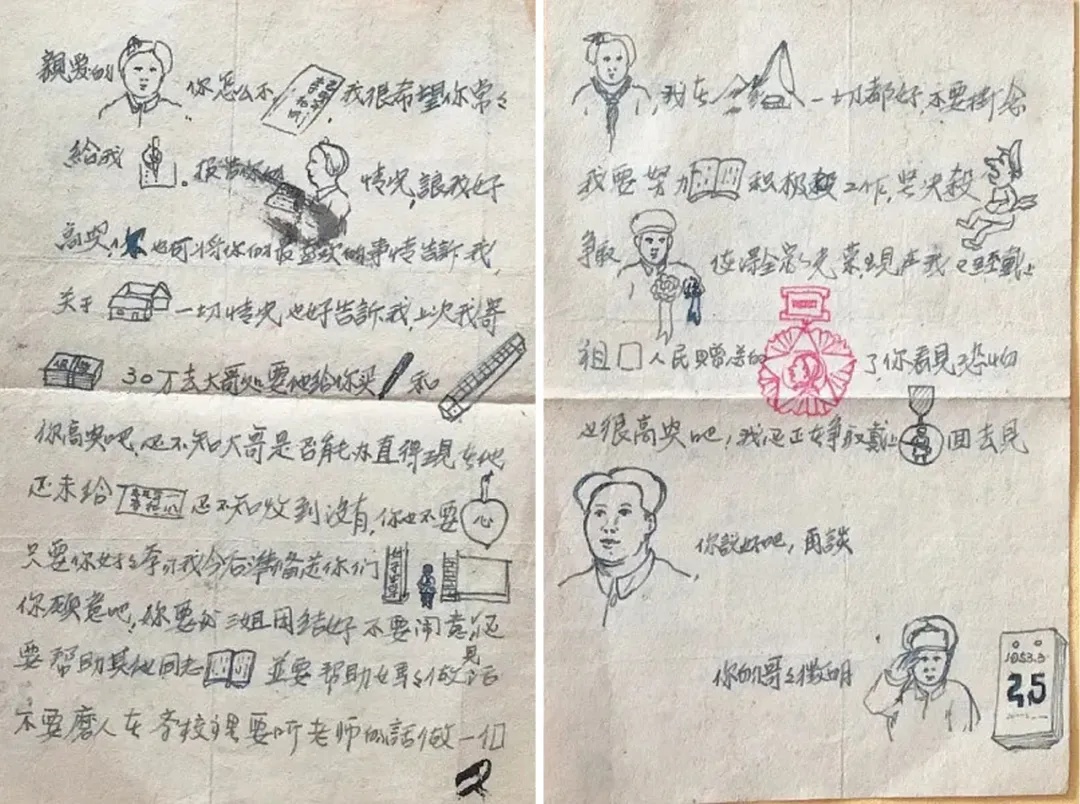 親爱的 你怎么不 ，我很希望你常々
給我 。报告你的 情况，讓我好
高兴， 也可将你们最喜欢的事情告訴我
关于 一切情况也好告訴我，上次我寄
30万去大哥处要他給你买 和
你高兴吧，还不知大哥是否能办直得現在他
还未给 还不知收到没有，你也不要 心
只要你好好 我今后准备送你们
你願意吧，你要和三姐团结好不要闹意見还
要帮助其他同志 並要帮助妈々做活
不要磨人在学校里要听老师的話做一们
，我在 一切都好，不要掛念
我要努力 积极 工作，坚决殺
争取 使得全家光荣，現在我已經戴上
祖 人民贈送的 了你看見恐怕
也很高兴吧，我还正在争取戴上 回去見
你説好吧，再談
你的哥々徵明
1953.3.
25